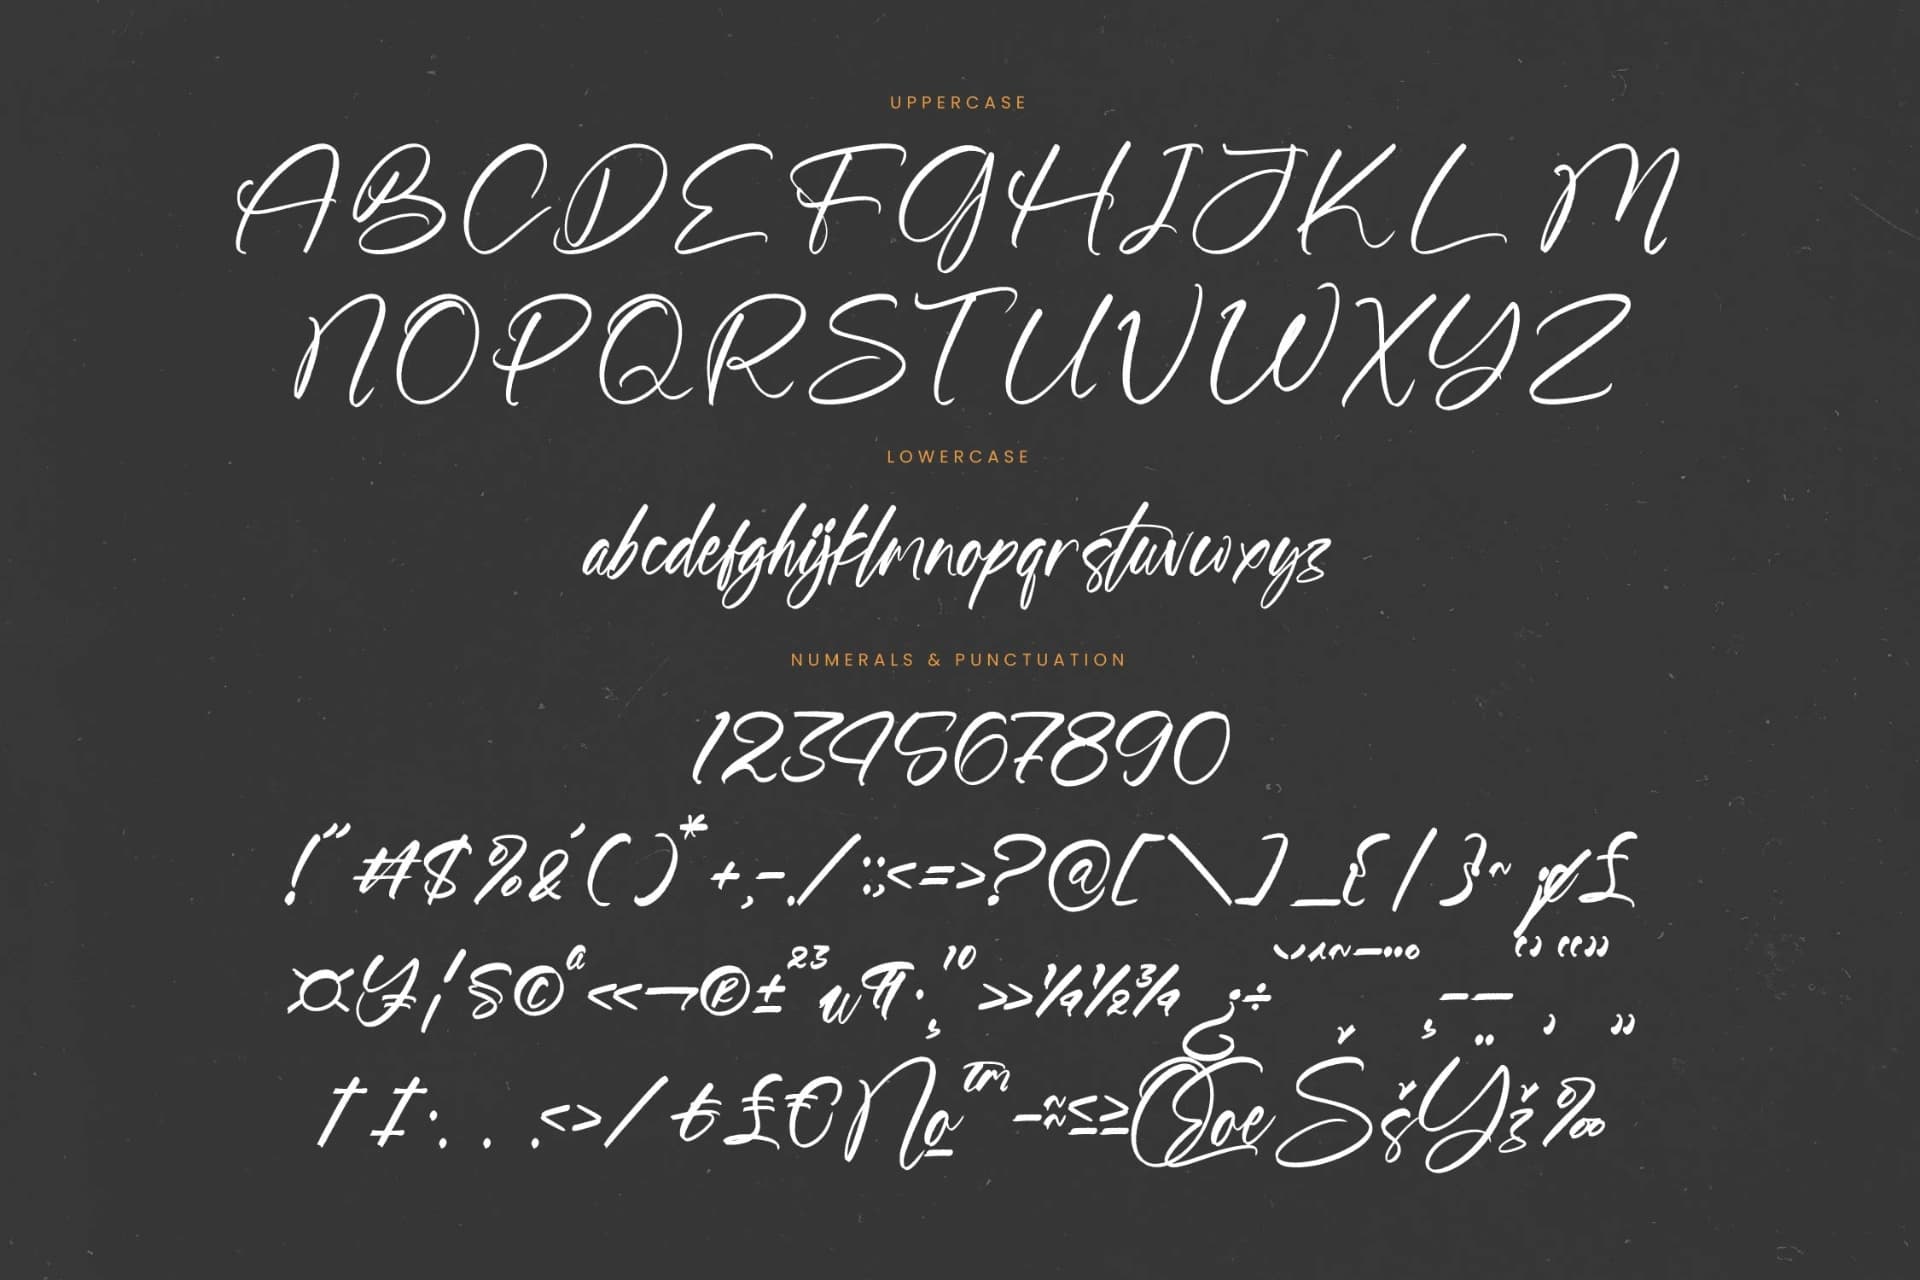 UPPERCASE
ABCDEFGHIJKLM
NOPQRSTUVWXYZ
LOWERCASE
abcdefghijklmnopqrstuvwxyz
NUMERALS & PUNCTUATION
1234567890
!"#$%&'()*+,-./:;<=>?@[\]_{|}~¡¢£
¤¥¦§©ª«¬®±²³µ¶·¸¹º»¼½¾¿÷˘ˆ˜¯˙¨˚–—‘’“”‚„
†‡•...‹›⁄₺₤€№™−≈≤≥ŒœŠšŸž‰